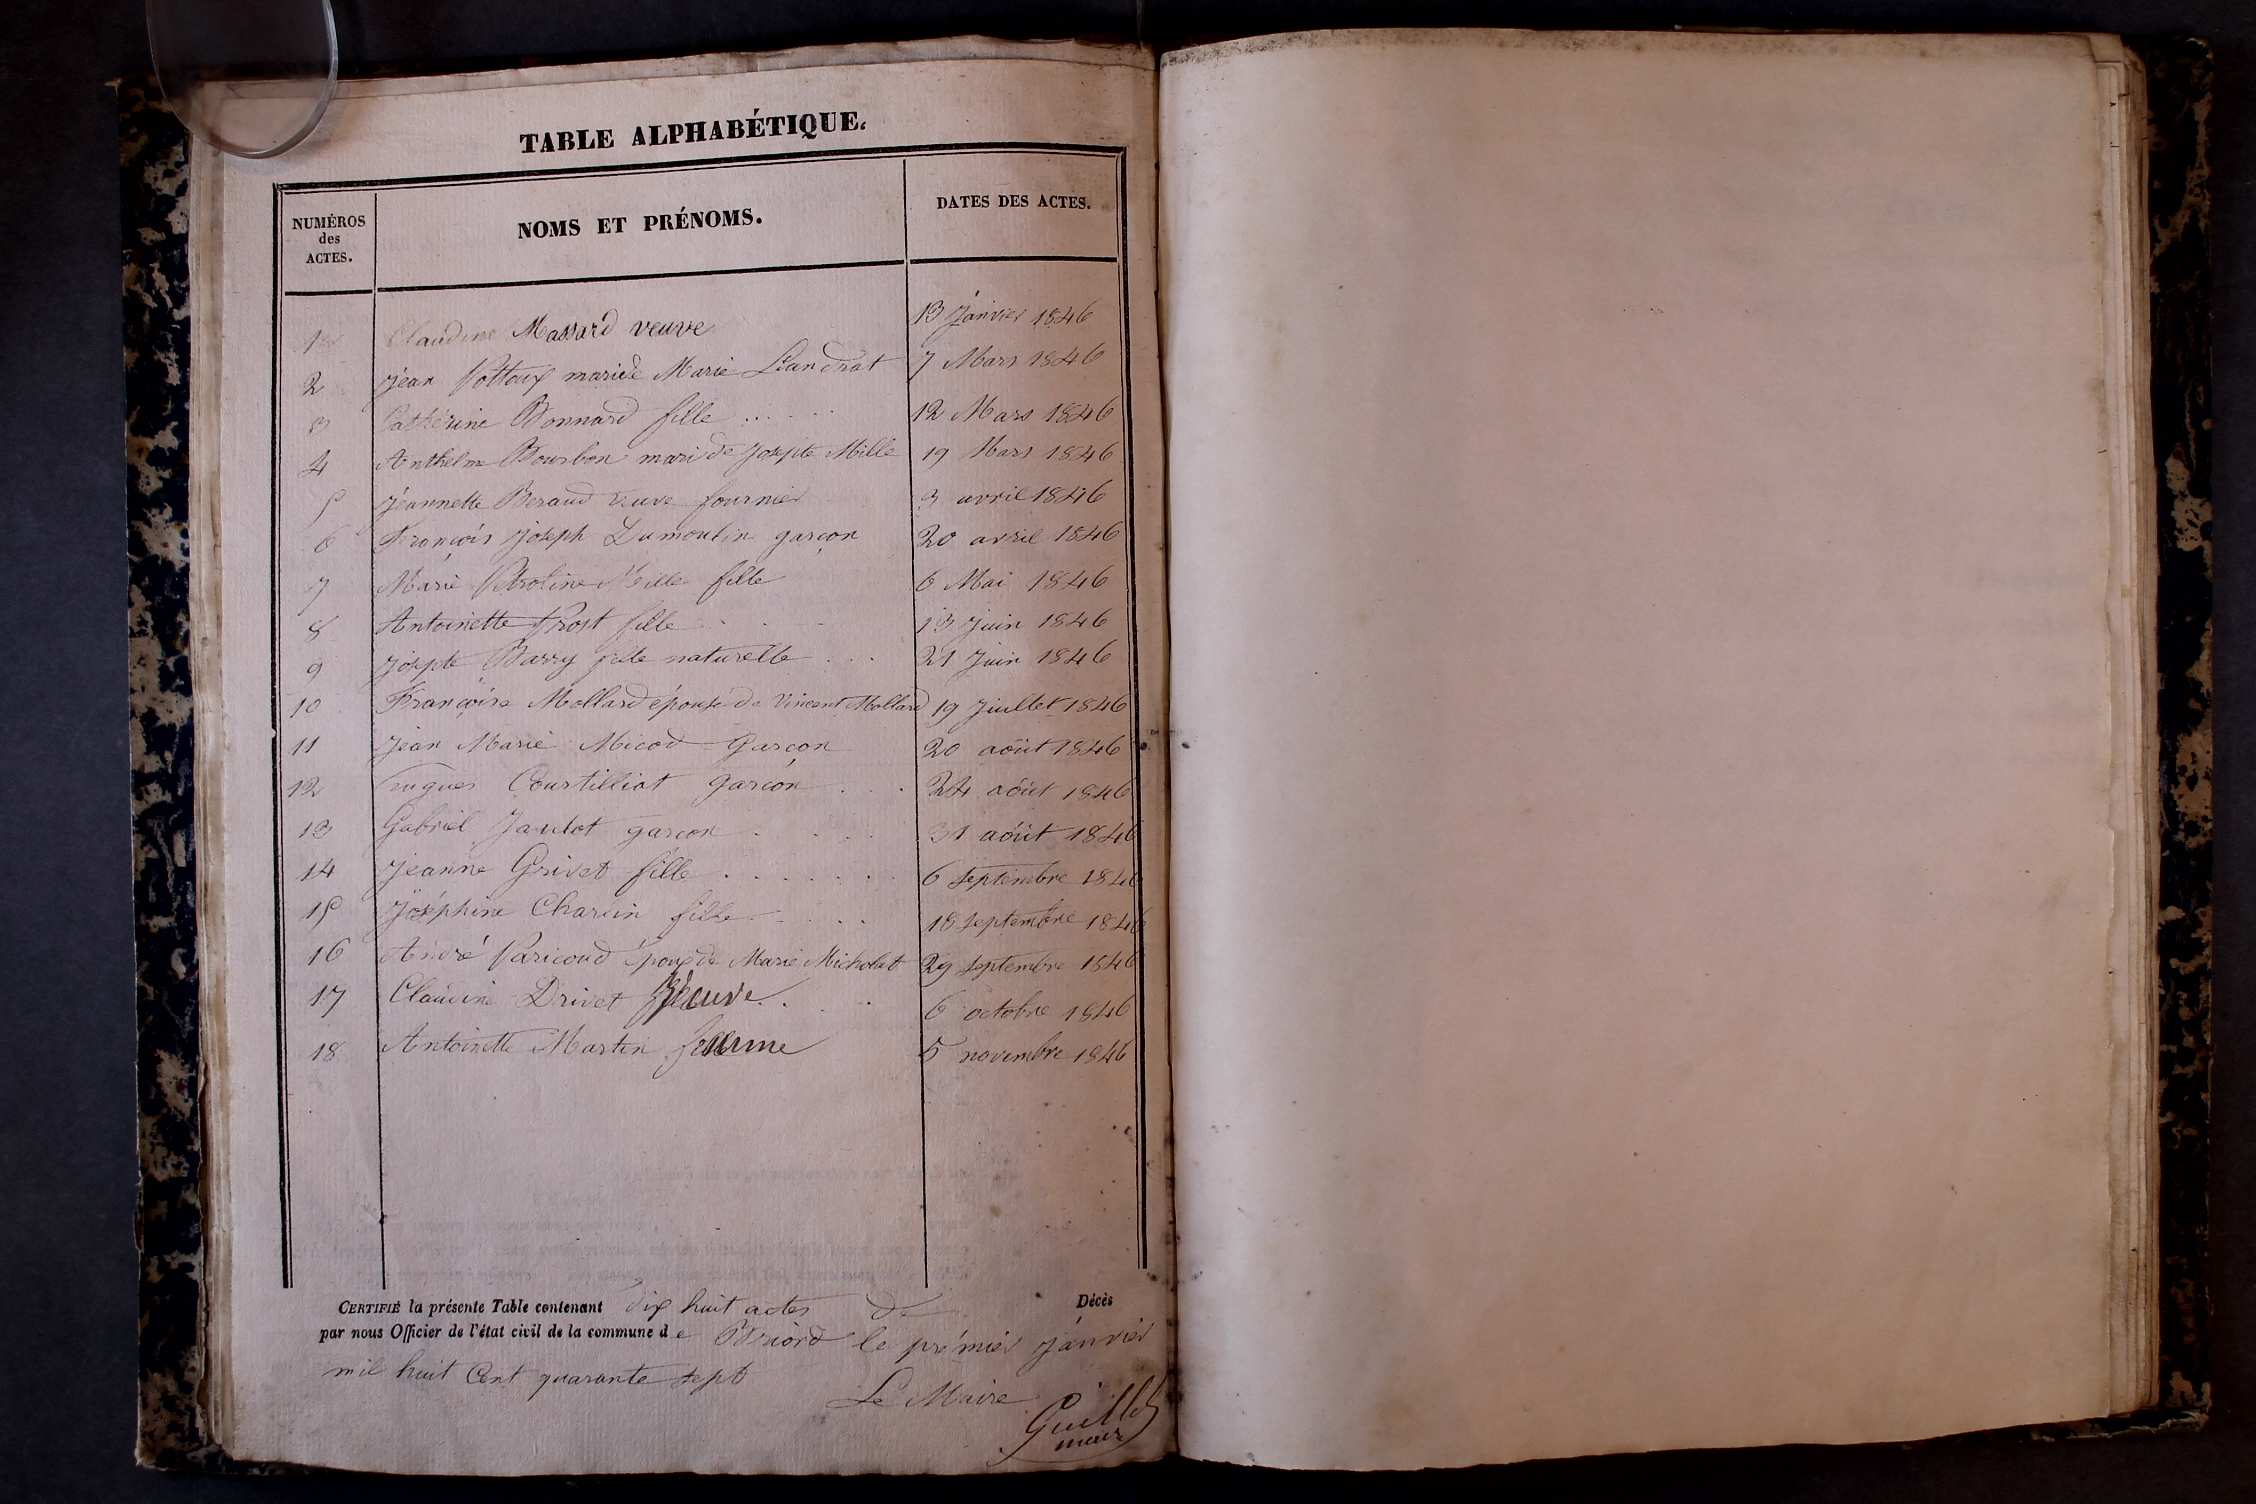 TABLE ALPHABÉTIQUE.
NUMÉROS
des
ACTES.
NOMS ET PRÉNOMS.
DATES DES ACTES.
1er Claudine Massard veuve 13 Janvier 1846
2 Jean Pottoux mari de Marie Liandrat 7 Mars 1846
3 Catherine Bonnard fille 12 Mars 1846
4 Anthelme Bourbon mari de Josepte Mille 19 Mars 1846
5 Jeannette Beraud veuve fournier 3 avril 1846
6 François Joseph Dumoulin garçon 20 avril 1846
7 Marie Mille fille 6 Mai 1846
8 Antoinette Prost fille 13 Juin 1846
9 Josepte Barry fille naturelle 21 Juin 1846
10 Françoise Mollard épouse de Vincent Mollard 19 Juillet 1846
11 Jean Marie Micod Garçon 20 août 1846
12 hugues Courtilliat garçon 24 août 1846
13 Gabriel Jantot garcon 31 août 1846
14 Jeanne Grivet fille 6 septembre 1846
15 Joséphine Charvin fille 18 septembre 1846
16 André Paricoud époux de Marie Micholat 29 septembre 1846
17 Claudine Drivet veuve 6 octobre 1846
18 Antoinette Martin femme 5 novembre 1846
CERTIFIÉ la présente Table contenant dix huit actes de Décès
par nous Officier de l'état civil de la commune de Briord le prémier janvier
mil huit Cent quarante sept
Le Maire
Guillot
maire